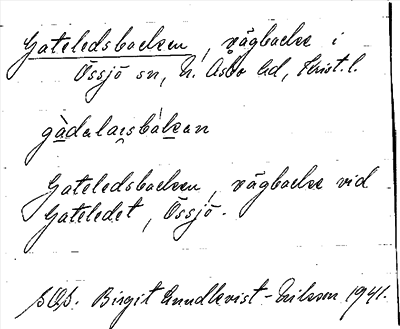 Gateledsbacken, vägbacke i
Össjö sn, N. Åsbo hd, Krist. l.
gàdalaisbàkan
Gateledsbacken, vägbacke vid
Gateledet, Össjö.
Birgit Lundkvist-Eriksson 1941.